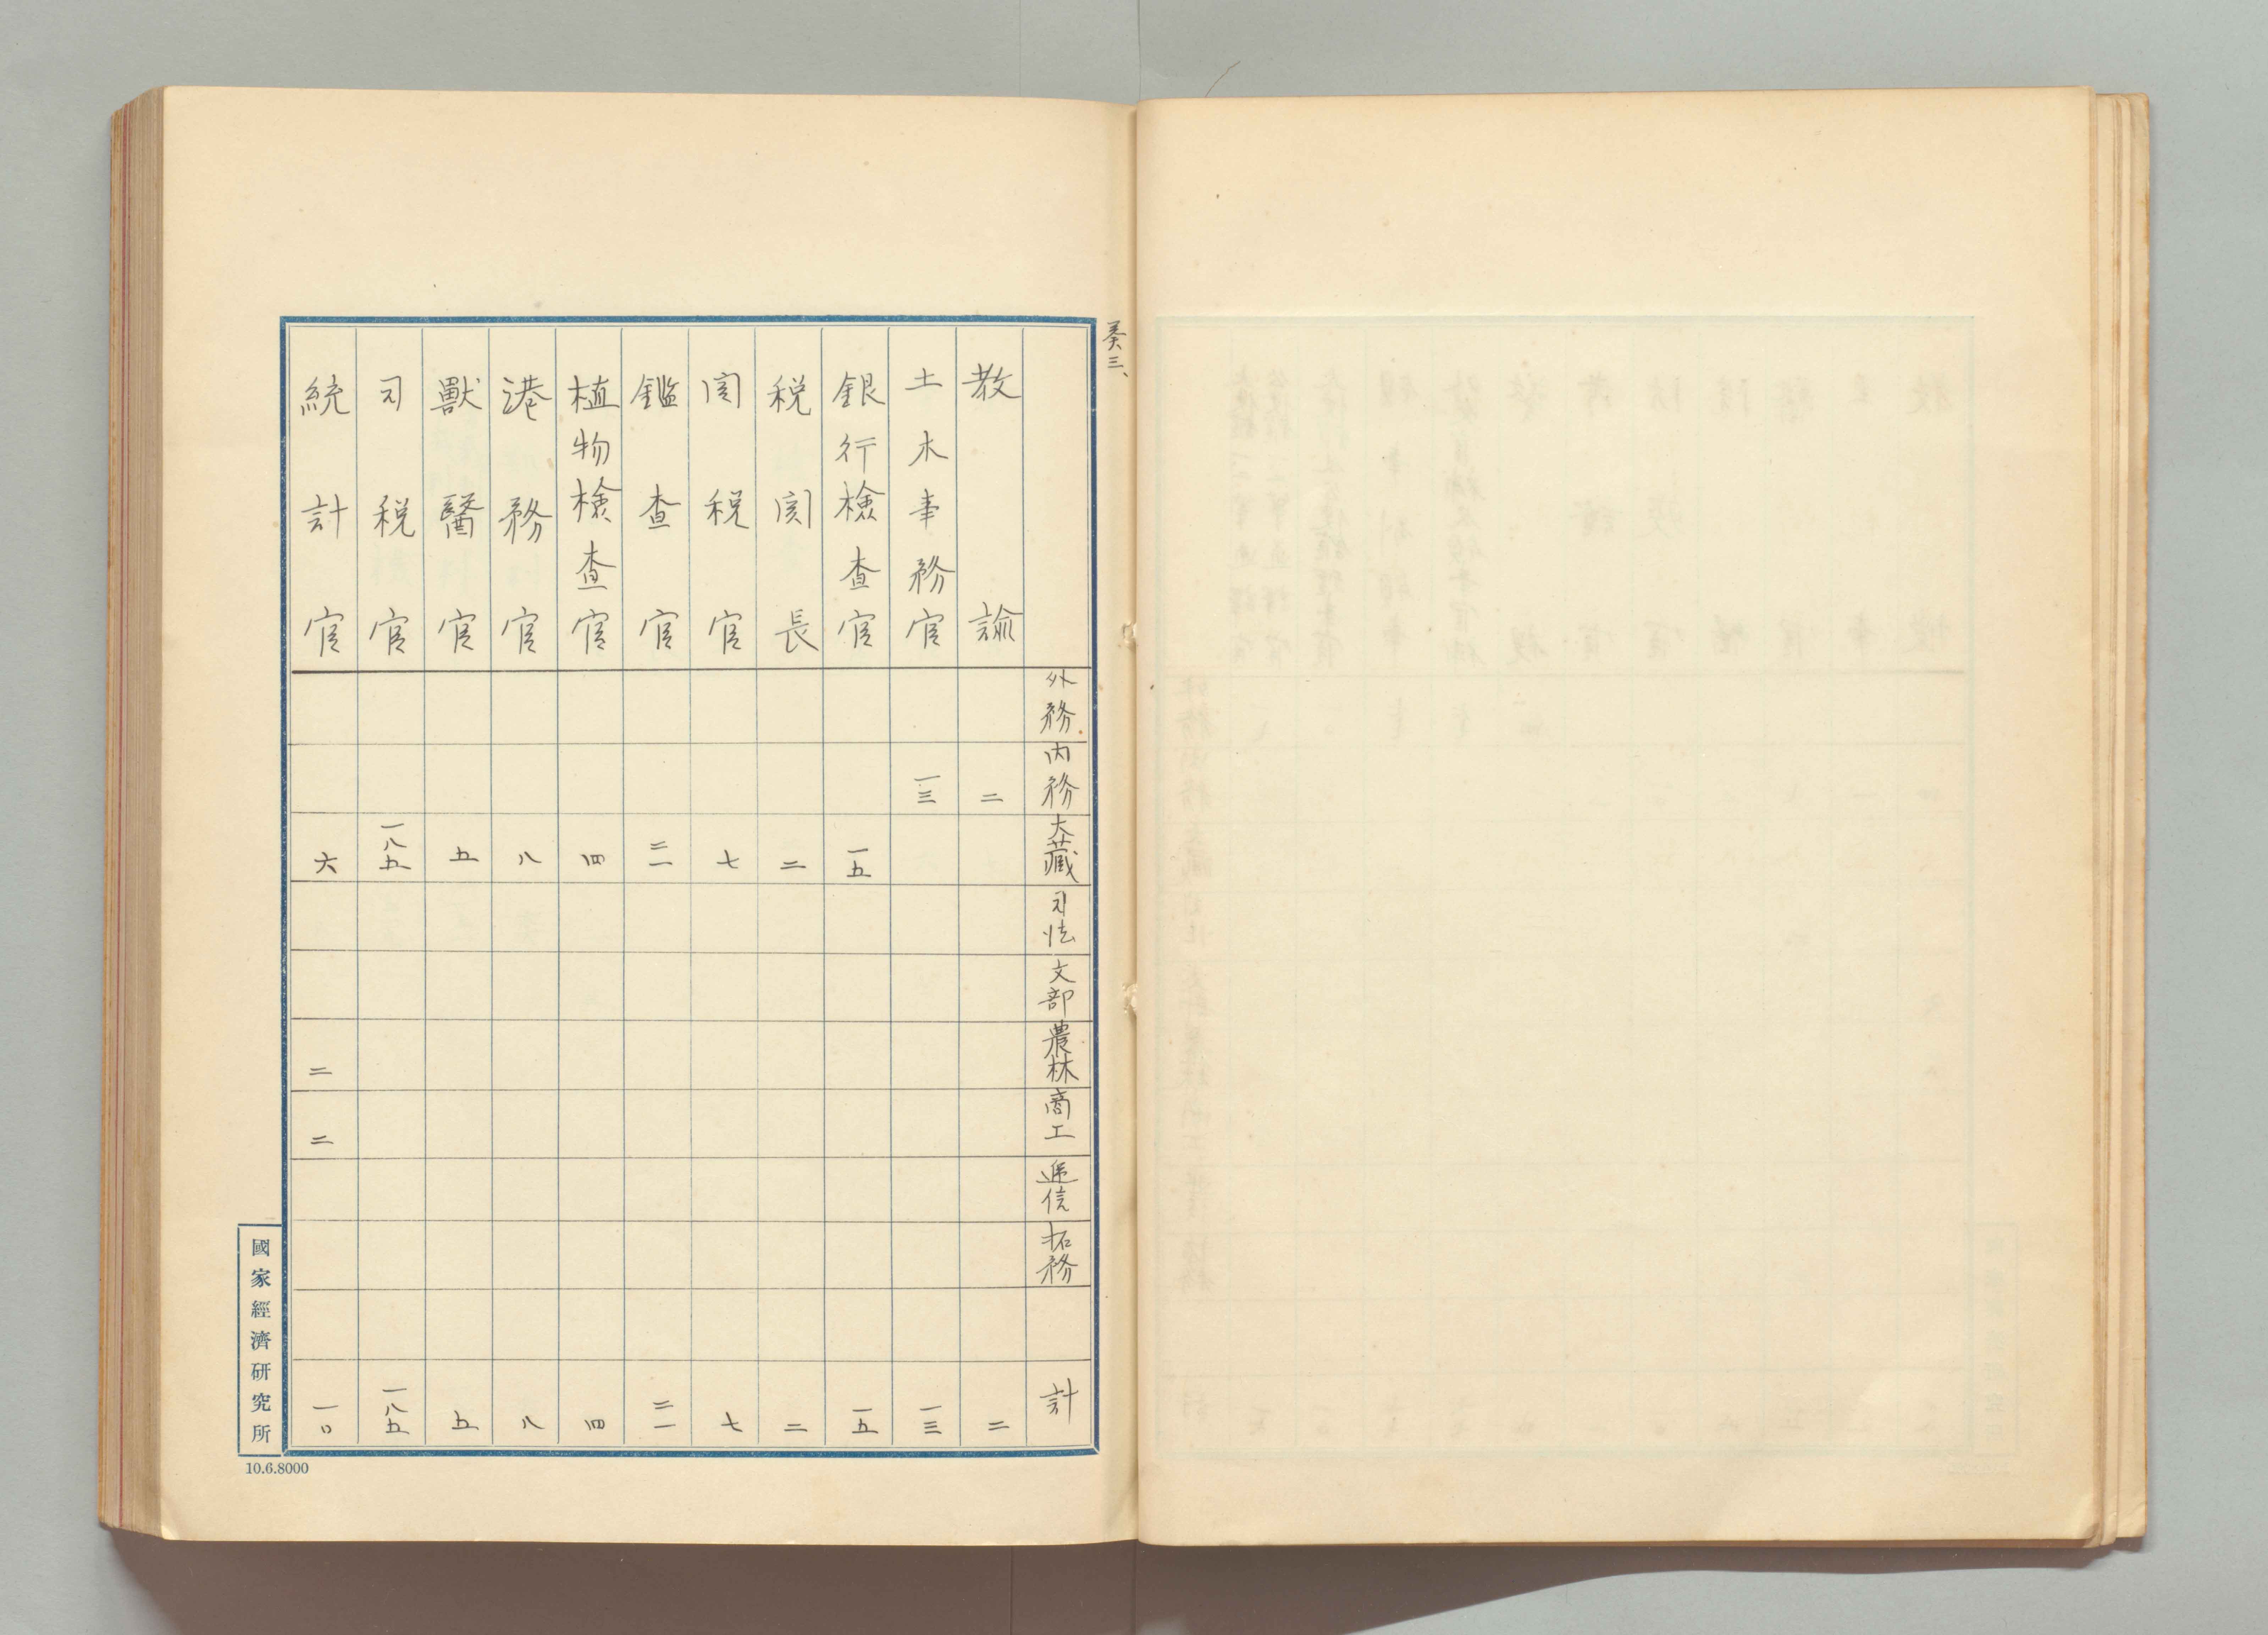 奏三、
外務 内務 大藏 司法 文部 農林 商工 逓信 拓務 計
教諭 二 二
土木事務官 一三 一三
銀行檢查官 一五 一五
税関長 二 二
関税官 七 七
鑑查官 二一 二一
植物検查官 四 四
港務官 八 八
獸醫官 五 五
司税官 一八五 一八五
統計官 六 二 二 一〇
國家經濟研究所
10.6.8000